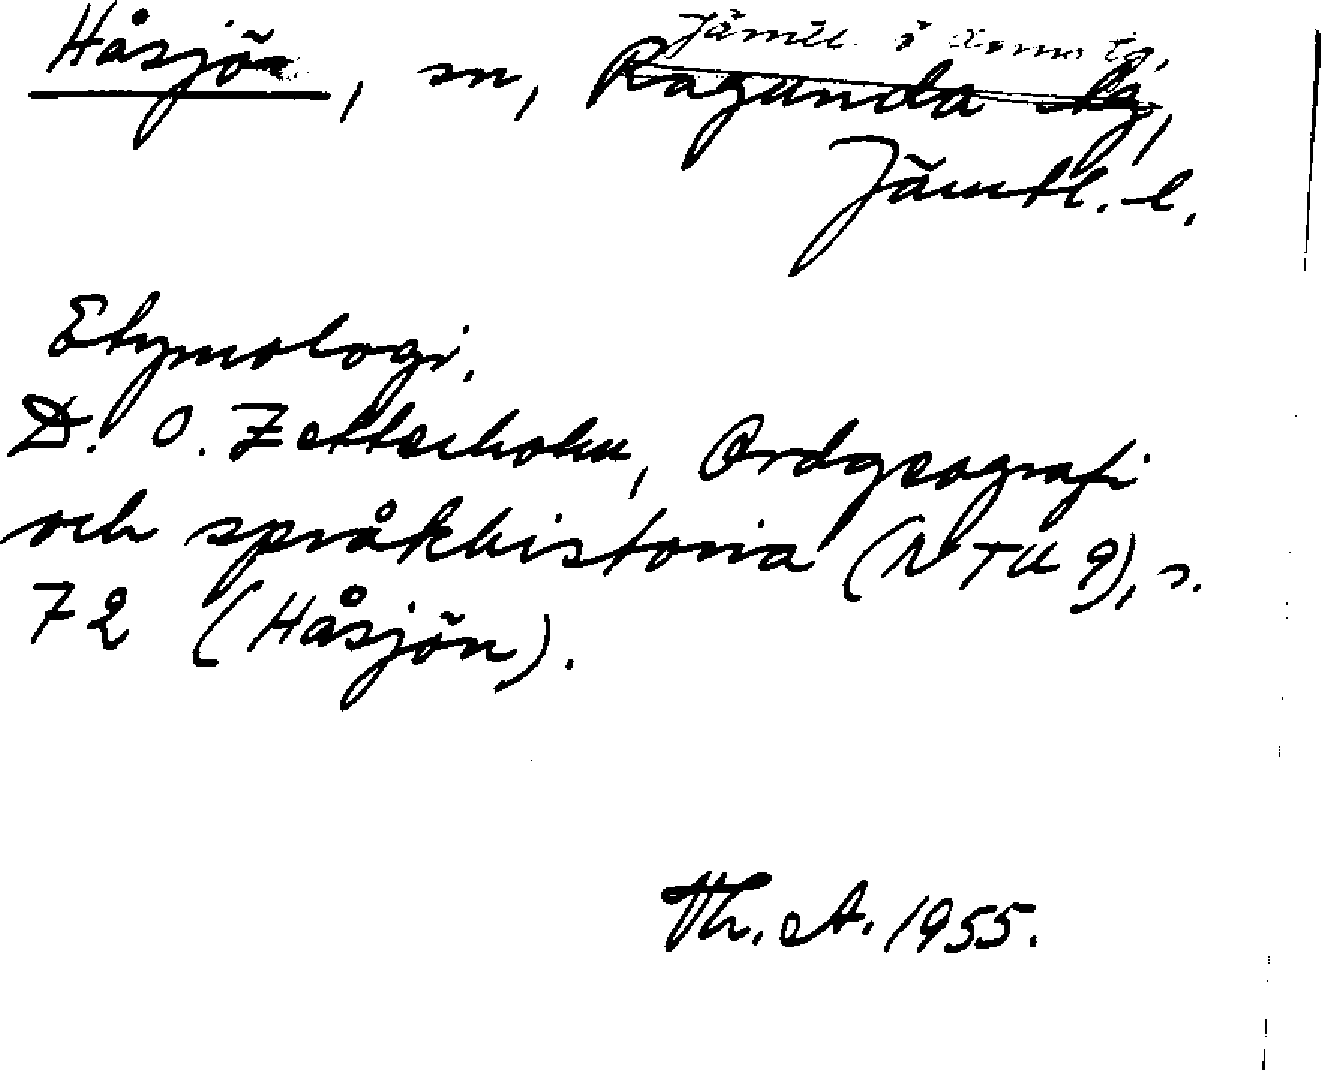 Jämtl. i domstg,
Håsjö, sn, Ragunda tg,
Jämtl. l.
Etymologi.
D. O. Zetterholm, Ordgeografi
och språkhistoria (NTU 9), s.
72 (Håsjön).
Th. A. 1955.